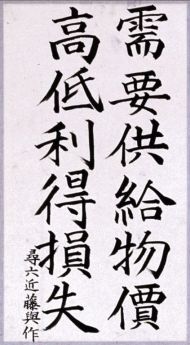 需要供給物價
高低利得損失
尋六近藤與作